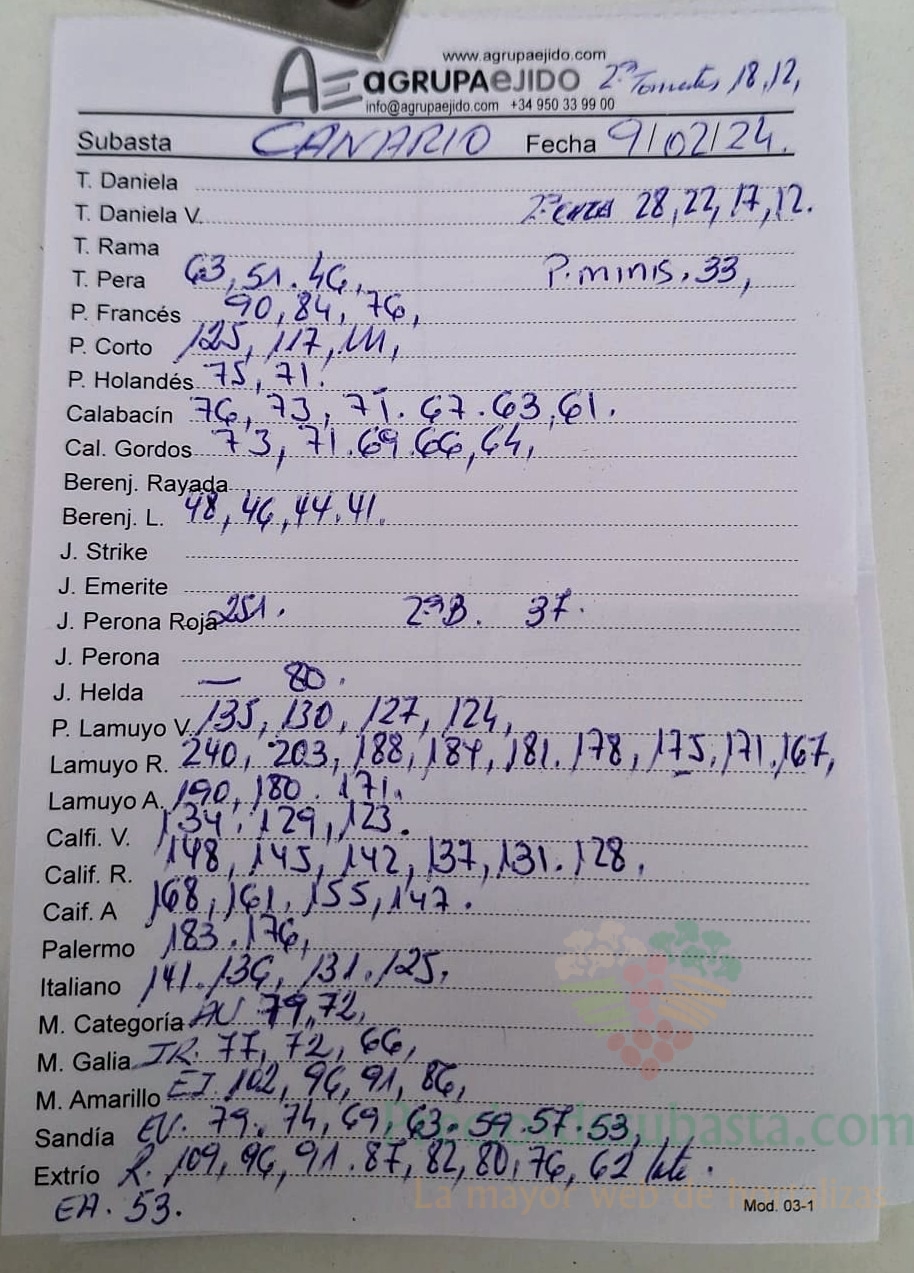 www.agrupaejido.com
AE aGRUPAeJIDO 2ª Tomates 18,12,
info@agrupaejido.com +34 950 33 99 00
Subasta CANARIO Fecha 9/02/24.
T. Daniela
T. Daniela V. 28,22,17,12.
T. Rama
T. Pera 63,51.46, P.minis.33,
P. Francés 90,84,76,
P. Corto 125,117,111,
P. Holandés 75,71.
Calabacín 76,73,71.67.63,61.
Cal. Gordos 73,71.69.66,64,
Berenj. Rayada
Berenj. L. 48,46,44.41.
J. Strike
J. Emerite
J. Perona Roja 251. 2ªB. 37.
J. Perona
J. Helda — 80.
P. Lamuyo V. 135,130,127,124,
Lamuyo R. 240,203,188,184,181.178,175,171.167,
Lamuyo A. 190,180.171.
Calfi. V. 134.129,123.
Calif. R. 148,145,142,137,131.128.
Caif. A 168,161.155,147.
Palermo 183.176,
Italiano 141.136,131.125.
M. Categoría AU 79,72,
M. Galia IR. 77,72,66,
M. Amarillo EI.102,96,91,86,
Sandía EV. 79.74,69,63.59.57.53,
Extrío R.109,96,91.87,82,80,76,62 lite.
EA.53.
Mod. 03-1
Preciosdesubasta.com
La mayor web de hortalizas